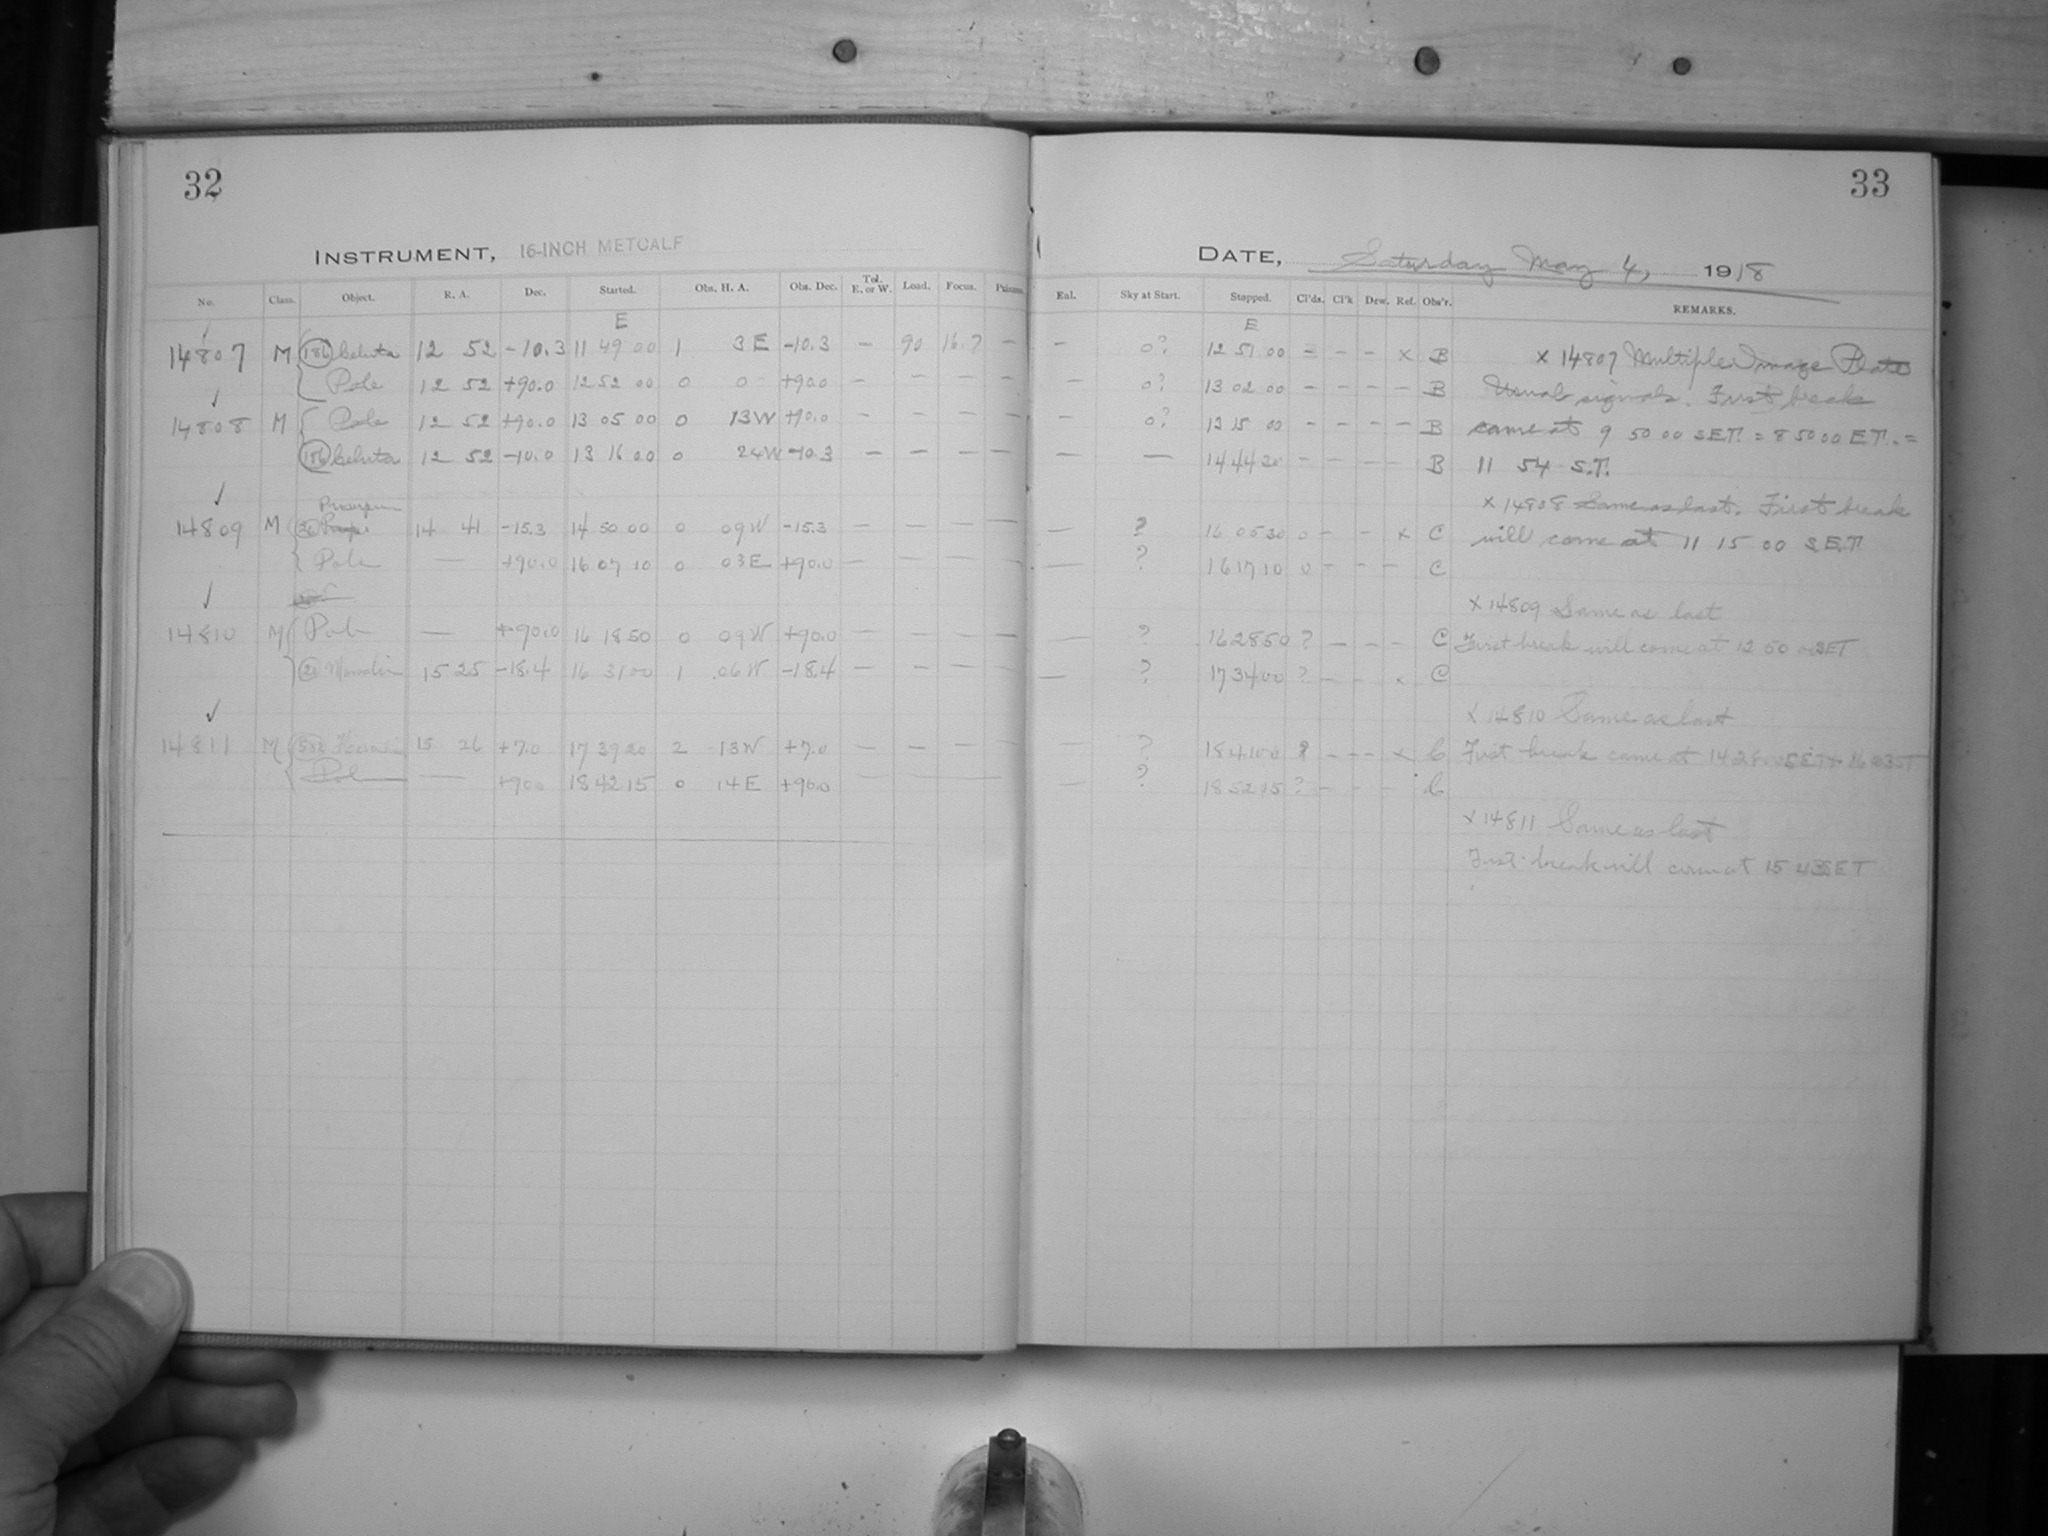 32
INSTRUMENT, 16-INCH METCALF
No. Class. Object. R. A. Dec. Started. Obs. H. A. Obs. Dec. Tel. E. or W. Load. Focus.
E
14807 M (186) Celuta 12 52 -10.3 11 49 00 1 3 E -10.3 - 90 16.7 -
Pole 12 52 +90.0 12 52 00 0 0 +90.0 - - - -
14808 M Pole 12 52 +90.0 13 05 00 0 13W +90.0 - - - -
Celuta 12 52 -10.0 13 16 00 0 24W -10.3 - - - -
14809 M 14 41 -15.3 14 50 00 0 09W -15.3 - - - -
Pole — +90.0 16 07 10 0 03E +90.0 - - - -
14810 M Pole — +90.0 16 18 50 0 09W +90.0 - - - -
15 25 -18.4 16 31 00 1 06W -18.4 - - - -
14811 M 15 26 +7.0 17 39 20 2 13W +7.0 - - - -
Pole — +90.0 18 42 15 0 14E +90.0
33
DATE, Saturday May 4, 1918
Sky at Start. Stopped. Cl'ds. Cl'k Dew. Ref. Obs'r. REMARKS.
E
- 0? 12 51 00 - - - x B x 14807 Multiple Image Plate
- 0? 13 02 00 - - - - B Usual signals. First break
- 0? 13 15 00 - - - - B came at 9 50 00 SET. = 8 50 00 ET. =
— 14 44 20 - - - - B 11 54 S.T.
x 14808 Same as last. First break
- ? 16 05 30 0 - - x C will come at 11 15 00 SET
- ? 16 17 10 0 - - - C
x 14809 Same as last
- ? 16 28 50 ? - - - C First break will come at 12 50 00 SET
- ? 17 34 00 ? - - x C
x 14810 Same as last
- ? 18 41 00 ? - - x C First break came at 14 28
- ? 18 52 15 ? - - - C
x 14811 Same as last
First break will come at 15 43 SET